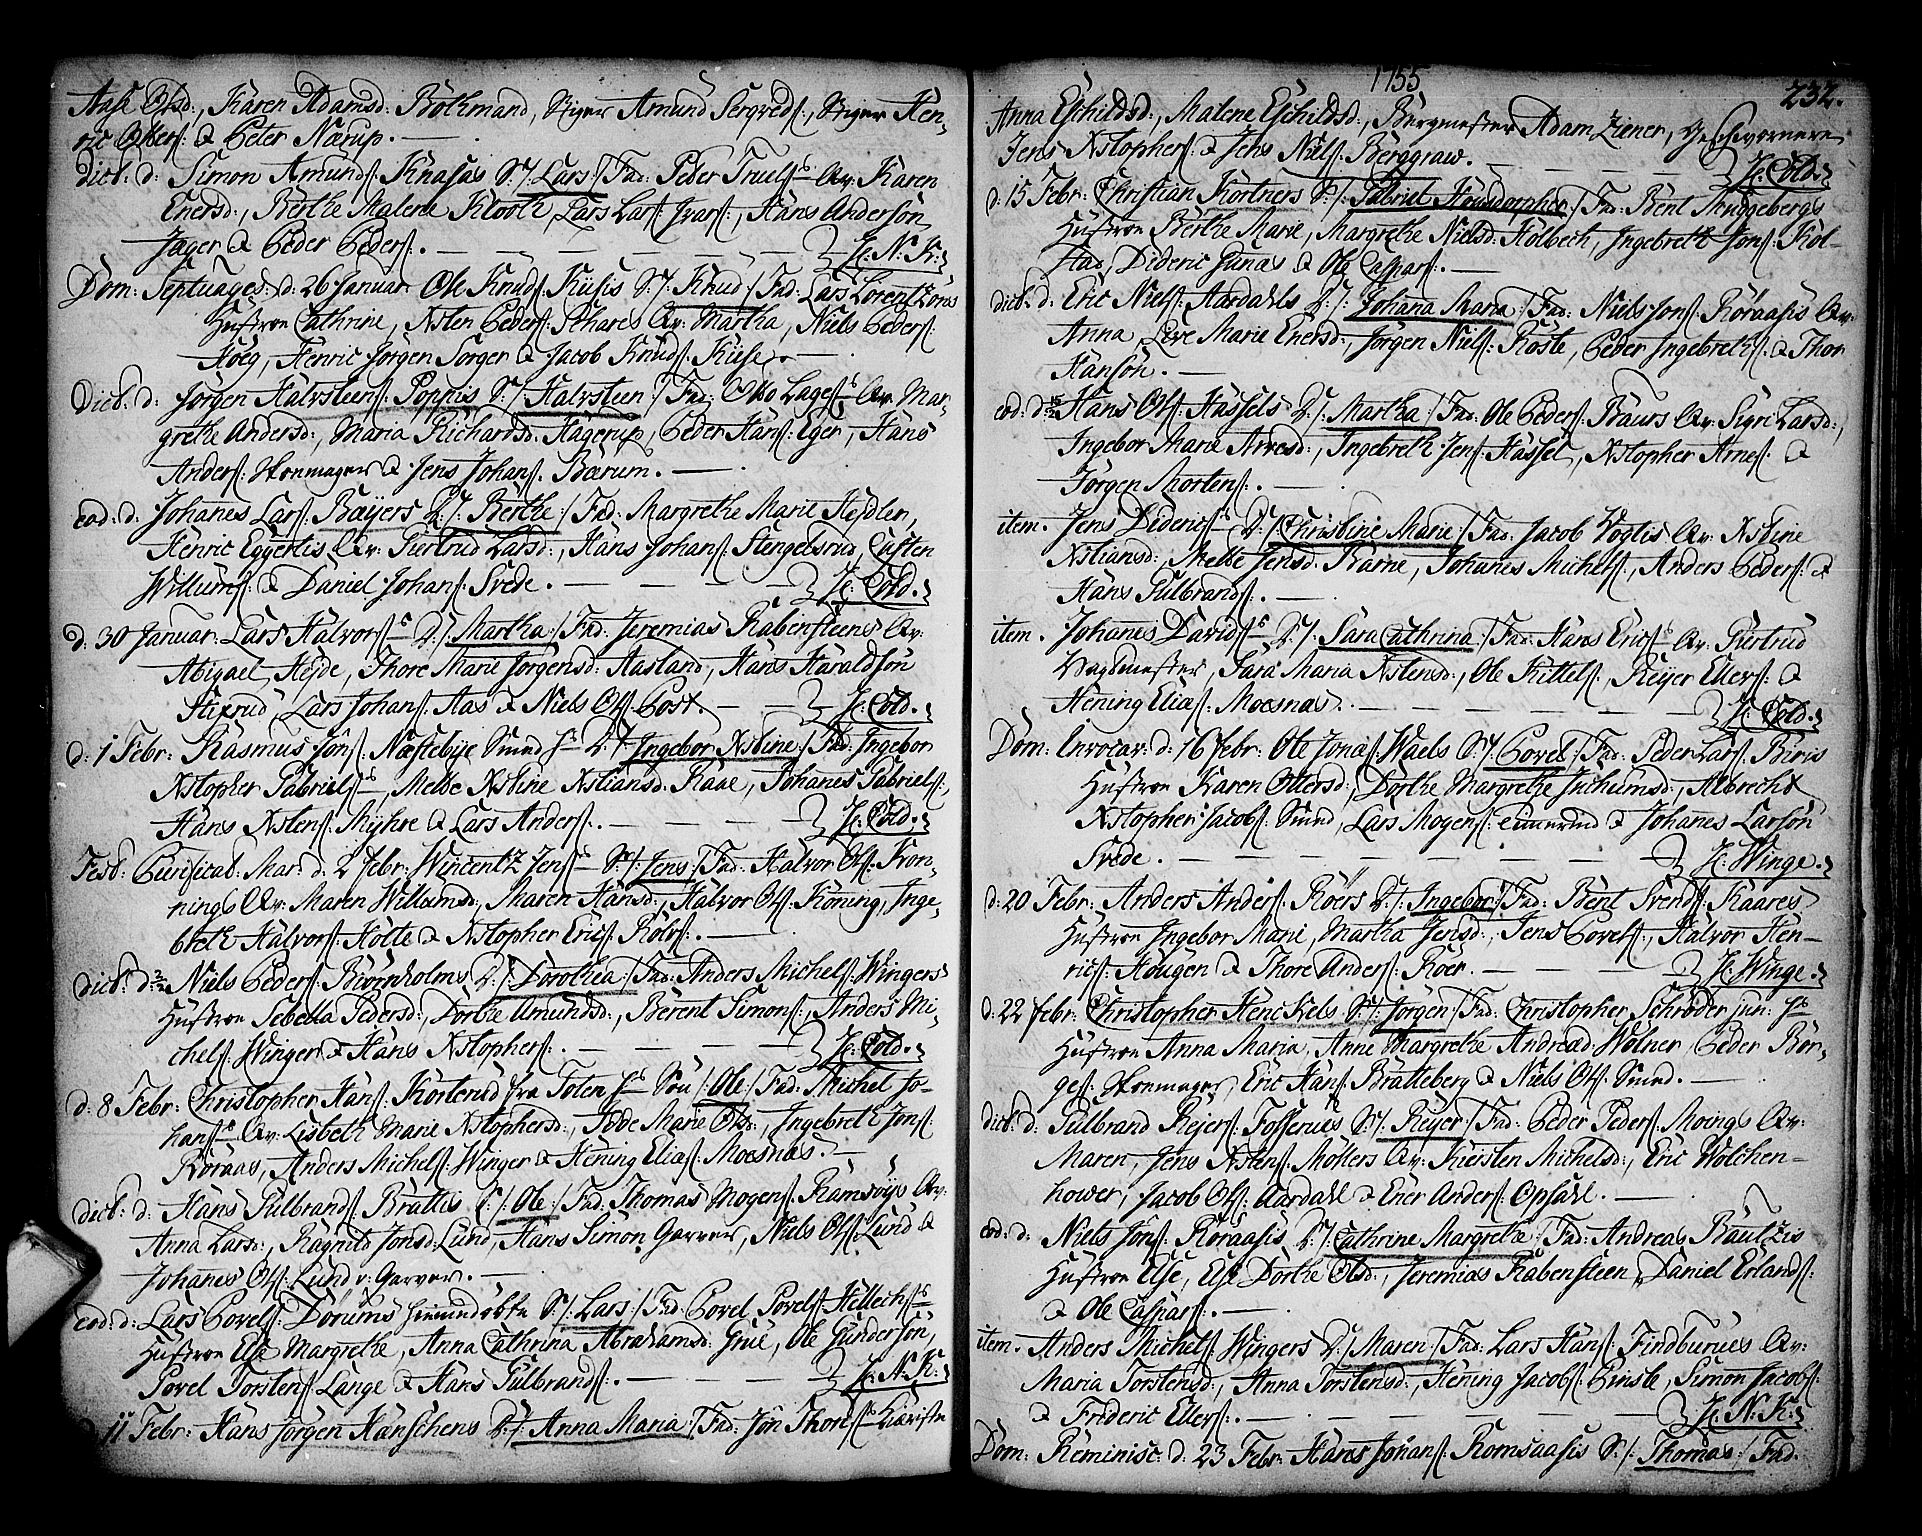 Aasa Olsd:, Karen Adamsd: Bothmand, Stiger Amund Sergveds:, Stiger Hen-
ric Olsers: & Peder Nærup. —
dict: d: Simon Amunds: Knasas S:/: Lars :/ Fad: Peder Truels: Qv: Karen
Enersd:, Berthe Malena Klooth, Lars Lars: Ivars:, Hans Anderson
Jæger & Peder Peders: . — — — H: N. K:
Dom: Septuages: d: 26 Januar: Ole Knuds: Kiisis S:/: Knud :/ Fad: Lars Lorentzons
Hustroe Cathrine, Xsten Peders: Qv: Martha, Niels Peders:
Hoeg, Henric Jørgen Sorger & Jacob Knuds: Kiise. —
Dict: d: Jørgen Halvsteens: Poppis S:/: Halvsteen :/ Fad: Otto Lages: Qv: Mar-
grethe Andersd:, Maria Richardsd: Hagerup, Peder Hans: Eger, Hans
Anders: Skomager & Jens Johans: Bærum. —
eod: d: Johanes Lars: Bæyers D:/: Berthe :/ Fad: Margrethe Marie Heydler,
Henric Eggertis Qv: Giertrud Larsd:, Hans Johans: Stengelsrud, Casten
Willums: & Daniel Johans: Svede. — — — H: Cold.
d: 30 Januar: Lars Halvors: D:/: Martha :/ Fad: Jeremias Rabensteens Qv:
Abigael Heyde, Thore Marie Jørgensd: Aasland, Hans Haraldson
Stixrud, Lars Johans: Aas & Niels Ols: Post. — — H: Cold.
d: 1 Febr: Rasmus Jons: Næstebye Smed D:/: Ingebor Xstine :/ Fad: Ingebor
Xstopher Gabriels:, Mette Xstine Xstiansd: Raae, Johanes Gabriels:,
Hans Xstens: Myhre & Lars Anders: . — — — H: Cold.
Fest: Purificat: Mar: d: 2 Febr: Wincentz Jens: S:/: Jens :/ Fad: Halvor Ols: Kon-
nings Qv: Maren Willumsd:, Maren Hansd:, Halvor Ols: Koning, Inge-
breth Halvors: Holte & Xstopher Erics: Rolvs: . —
dict: d: Niels Peders: Biørnholms D:/: Dorothea :/ Fad: Anders Michels: Wingers
Hustroe Sebella Pedersd:, Dorthe Amundsd:, Berent Simons:, Anders Mi-
chels: Winger & Hans Xstophers: . — — — H: Cold.
d: 8 Febr: Christopher Hans: fra Toten Søn /: Ole :/ Fad: Michel Jo-
hans: Qv: Lisbeth Marie Xstophersd:, Tode Marie Olsd:, Ingebreth Jons:
Røraas, Anders Michels: Winger & Hening Elias: Moesnæs. —
dict: d: Hans Gulbrands: Brattis S:/: Ole :/ Fad: Thomas Mogens: Ramsøys Qv:
Anna Larsd:, Ragnild Jonsd: Lund, Hans Simon Garver, Niels Ols: Lund &
Johanes Ols: Lund v: Garver. —
eod: d: Lars Povels: Dorums S:/: Lars :/ Fad: Povel Povels: Hellechs:
Hustroe Else Margrethe, Anna Cathrina Abrahamsd: Grue, Ole Gunderson,
Povel Torstens: Lange & Hans Gulbrands: . — — — H: N. K:
11 Febr: Hans Jørgen Hanschens D:/: Anna Maria :/ Fad: Jon Thors:
1755
232.
Anna Eschildsd:, Malene Eschildsd:, Burgmester Adam Ziener, Geschwornere
Jens Xstophers: & Jens Niels: Berggraw. — — — H: Cold.
d: 15 Febr: Christian Kortners S:/: Gabriel Housdorpher :/ Fad: Bent Skuggebergs
Hustroe Berthe Marie, Margrethe Nielsd: Holbech, Ingebreth Jons: Kol-
stad, Dideric Junas & Ole Caspars: . —
dict: d: Eric Niels: Aardahls D:/: Johana Maria :/ Fad: Niels Jons: Røraasis Qv:
Anna, Live Marie Enersd:, Jørgen Niels: Røste, Peder Ingebreths: & Thor
Hanson. —
eod: d: Hans Ols: Hassels D:/: Martha :/ Fad: Ole Peders: Baurs Qv: Sigri Larsd:,
Ingebor Marie Arnesd:, Ingebreth Jens: Hassel, Xstopher Arnes: &
Jørgen Mortens: . —
item. Jens Diderics: D:/: Christine Marie :/ Fad: Jacob Vogtis Qv: Xstine
Xstiansd:, Mette Jensd: Rarne, Johanes Michels:, Anders Peders: &
Hans Gulbrands: . —
item. Johanes Davids: D:/: Sara Cathrina :/ Fad: Hans Erics: Qv: Giertrud
Bagsmester, Sara Maria Xstensd:, Ole Kittels:, Reyer Ellevs: &
Hening Elias: Moesnæs. — — — H: Cold.
Dom: Invocav: d: 16 Febr: Ole Jonas: Waels S:/: Povel :/ Fad: Peder Lars: Biris
Hustroe Karen Ottersd:, Dorthe Margrethe Jochumsd:, Albrecht
Xstopher Jacobs: Smed, Lars Mogens: & Johanes Larson
Svede. — — — H: Winge.
d: 20 Febr: Anders Anders: Røers D:/: Ingebor :/ Fad: Bent Svends: Kaares
Hustroe Ingebor Marie, Martha Jensd:, Jens Povels:, Halvor Hen-
rics: Hougen & Thore Anders: Røer. — — — H: Winge.
d: 22 Febr: Christopher Henckels S:/: Jørgen :/ Fad: Christopher Schrøder jun:
Hustroe Anna Maria, Anne Margrethe Andread: Wolner, Peder Bør-
ges: Skomager, Eric Hans: Bratteberg & Niels Ols: Smed. —
dict: d: Gulbrand Reyers: Fosserues S:/: Reyer :/ Fad: Peder Peders: Moings Qv:
Maren, Jens Xstens: Møllers Qv: Kiersten Michelsd:, Eric Wolchen-
hower, Jacob Ols: Aardahl & Ener Anders: Opsahl. —
eod: d: Niels Jons: Røraasis D:/: Cathrine Margrethe :/ Fad: Andreas Bautzis
Hustroe Else, Else Dorthe Olsd:, Jeremias Rabensteen, Daniel Erlands:
& Ole Caspars: . —
item. Anders Michels: Wingers D:/: Maren :/ Fad: Lars Hans: Findburues Qv:
Maria Torstensd:, Anna Torstensd:, Hening Jacobs: Pinsle, Simon Jacobs:
& Frideric Ellevs: . — — — H: N. K:
Dom: Reminisc: d: 23 Febr: Hans Johans: Romsaasis S:/: Thomas :/ Fad: